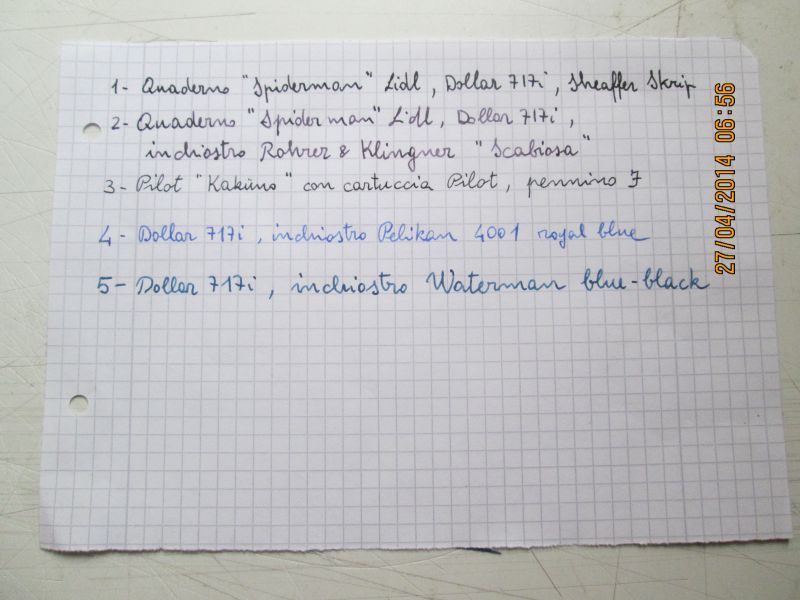 1- Quaderno "Spiderman" Lidl, Dollar 717i, Sheaffer Skrip
2- Quaderno "Spiderman" Lidl, Dollar 717i,
inchiostro Rohrer & Klingner "Scabiosa"
3- Pilot "Kakuno" con cartuccia Pilot, pennino F
4- Dollar 717i, inchiostro Pelikan 4001 royal blue
5- Dollar 717i, inchiostro Waterman blue-black
27/04/2014 06:56